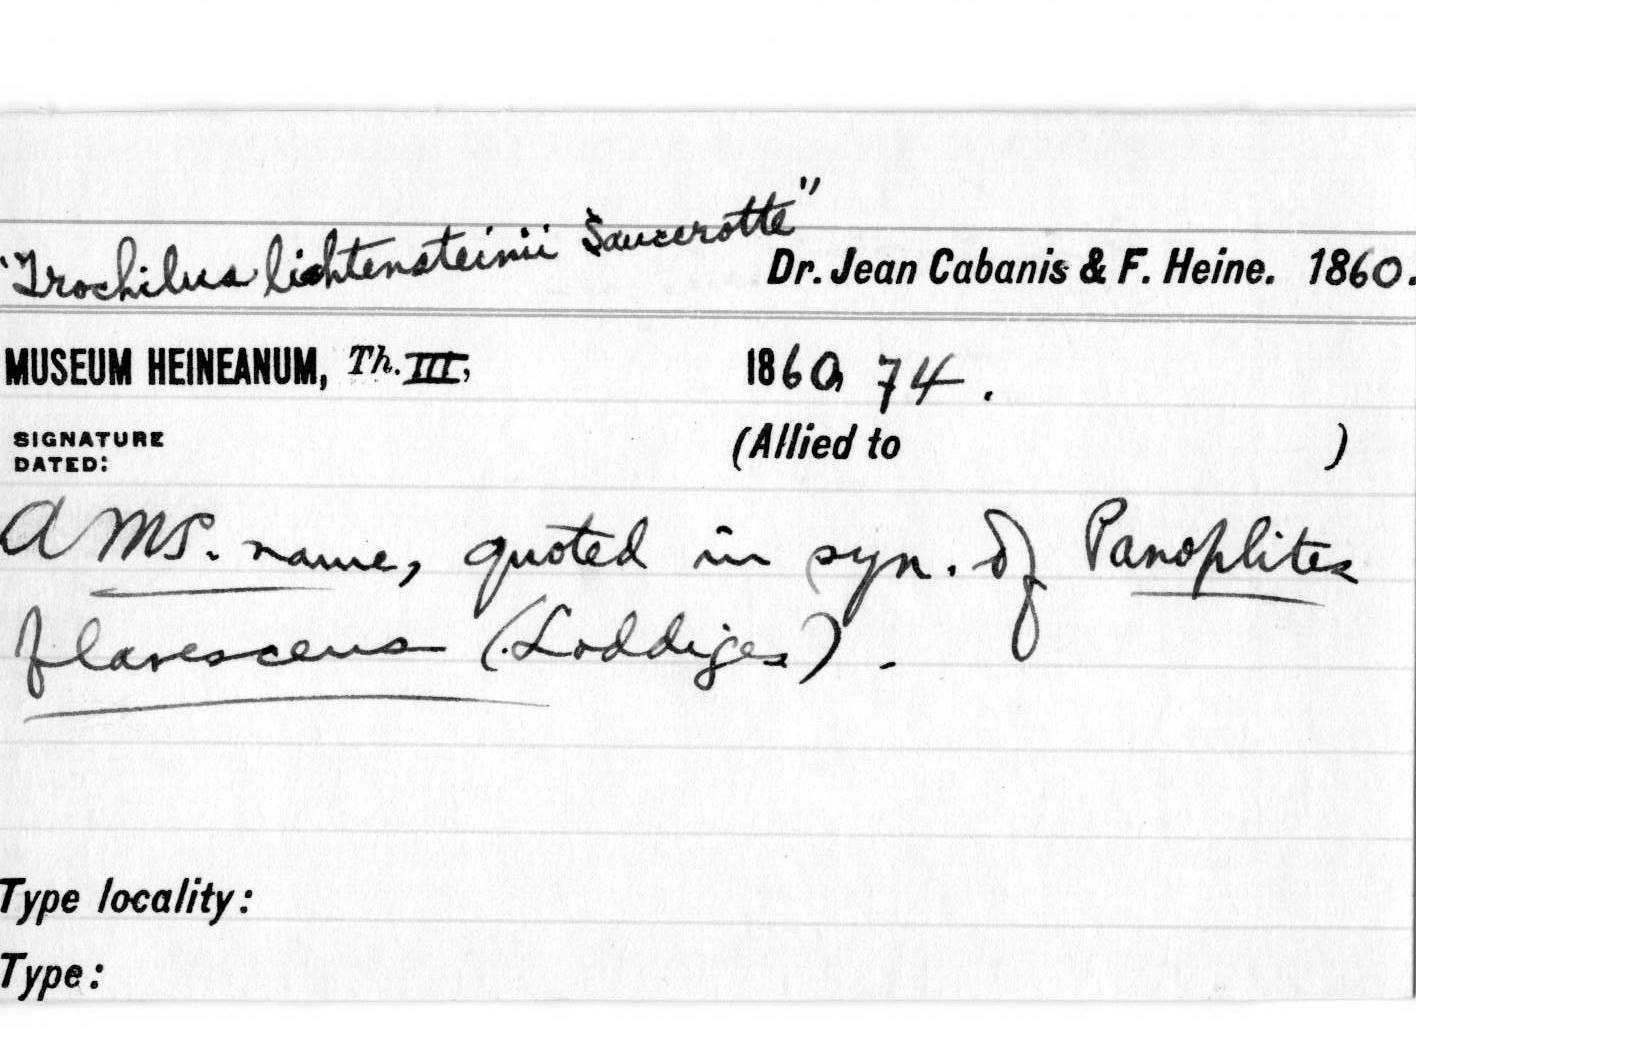 "Trochilus lichtensteinii Saucerotte"
Dr. Jean Cabanis & F. Heine. 1860.
MUSEUM HEINEANUM, Th. III, 1860, 74.
SIGNATURE
DATED:
(Allied to )
A MS. name, quoted in syn. of Panoplites
flavescens (Loddiges).
Type locality:
Type: